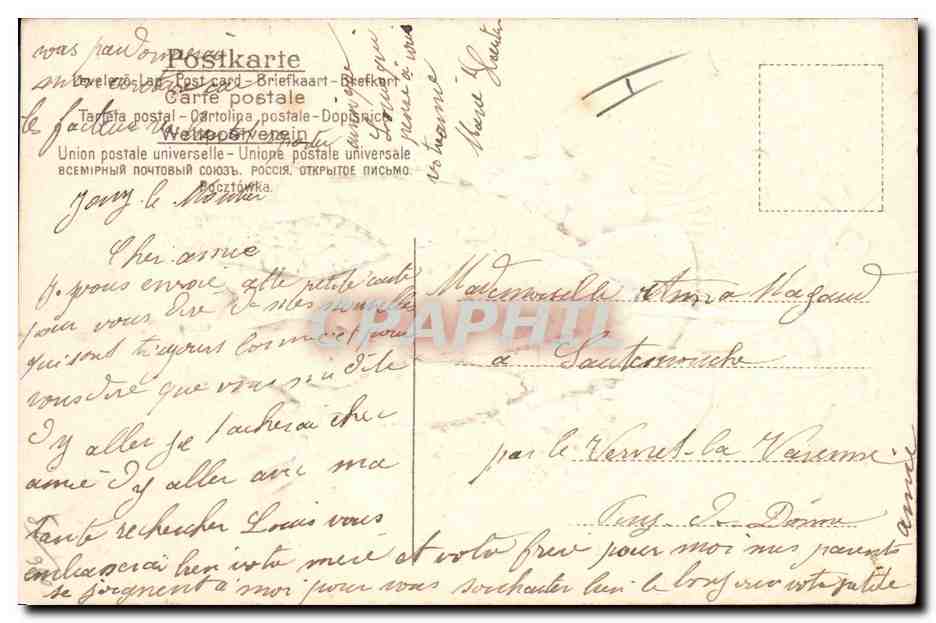 vous pardonnerai
Postkarte
mon
Levelező-Lap - Post card - Briefkaart - Brefkort
Carte postale
Tarjeta postal - Cartolina postale - Dopisnica
le facteur
Weltpostverein
Union postale universelle - Unione postale universale
ВСЕМІРНЫЙ ПОЧТОВЫЙ СОЮЗЪ. РОССІЯ. ОТКРЫТОЕ ПИСЬМО.
Pocztówka.
pense à vous
votre amie
Marie
Jouy le Moutier
Cher amie
Je vous envoi cette petite carte
pour vous dire de mes nouvelles
qui sont toujours bonne et pour
vous dire que vous mi dite
d'y aller je tacherai cher
amie d'y aller avec ma
tante rechercher Louis vous
embrasserai bien votre mere et votre frere pour moi mes parents
se joignent à moi pour vous souhaiter bien le bonjour votre petite
amie
Mademoiselle Anna
CPAPHIL
à Sauterousche
par le Vernet-la Varenne
Puy-de-Dôme